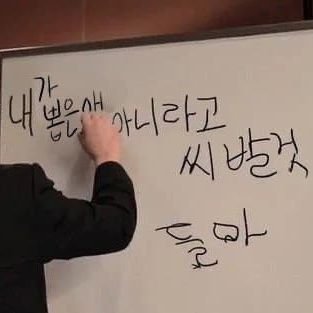 내가 뽑은 애 아니라고
씨발것
들아